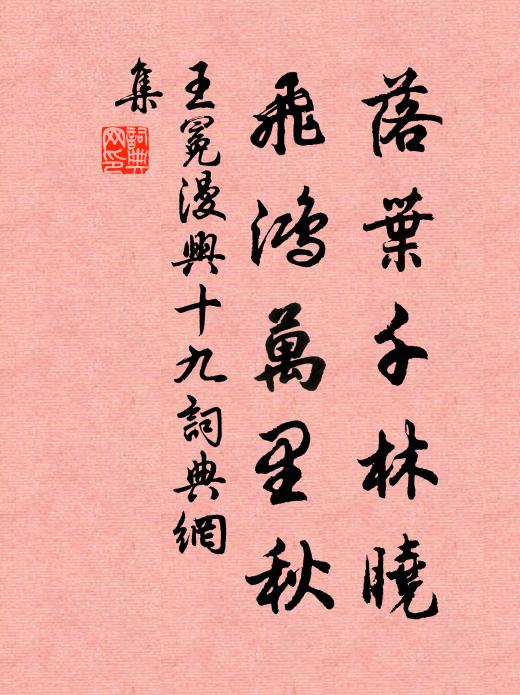 落葉千林曉
飛鴻萬里秋
王冕漫興十九詞典網
集
詞典網印